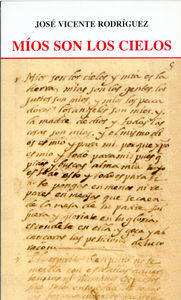 JOSÉ VICENTE RODRÍGUEZ
MÍOS SON LOS CIELOS
Mios son los cielos y mia es la
tierra, mias son las gentes, los
justos son mios, y mios los peca
dores. los angeles son mios, y
la madre de dios y todas las
cosas son mias. y el mismo dios
es mio y para mi. porque xpo
es mio y todo para mi. pues q
pides y buscas alma mia tuyo
es todo esto y todo es para ti
no te pongas en menos ni re
pares en meajas que se caen
de la mesa de tu padre. sal
fuera y gloriate en tu gloria
escondete en ella y goza y al
cançaras las peticiones de tu co
raçon